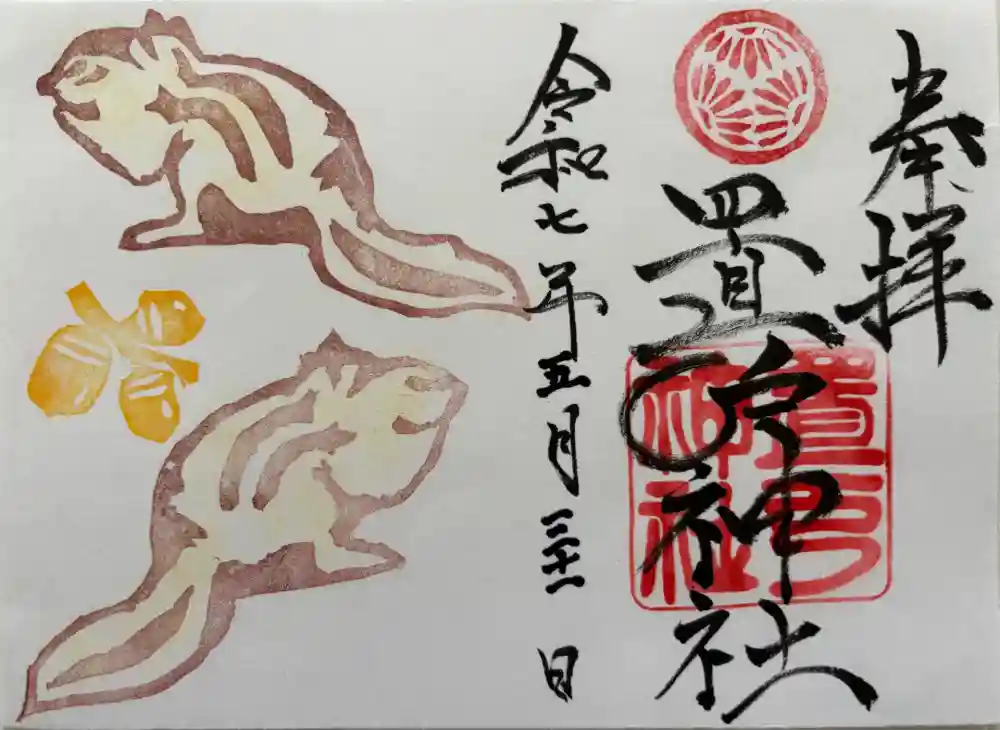 奉拝
置戸神社
置戸神社
令和七年五月三十一日